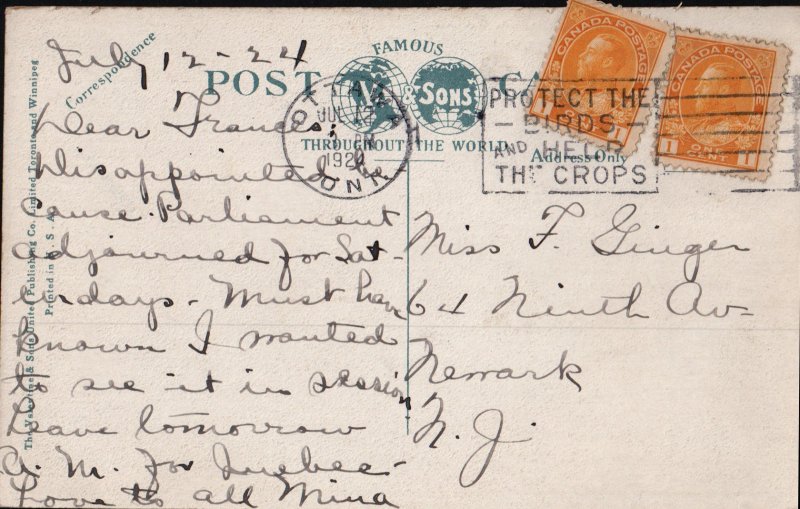 July 12-24
Correspondence
FAMOUS
POST CA
V & SONS
THROUGHOUT THE WORLD
Address Only
CANADA POSTAGE
1 1
CENT
CANADA POSTAGE
1 ONE 1
CENT
OTTAWA
JUL 12
1924
ONT
PROTECT THE
BIRDS
AND HELP
THE CROPS
Dear Frances;
Disappointed
cause Parliament
adjourned for Sat-
urdays - Must have
known I wanted
to see it in session
Leave tomorrow
A.M. for Quebec-
Love to all Mina
Miss F. Ginger
64 Ninth Av-
Newark
N. J.
The Valentine & Sons United Publishing Co. Limited Toronto and Winnipeg
Printed in U. S. A.